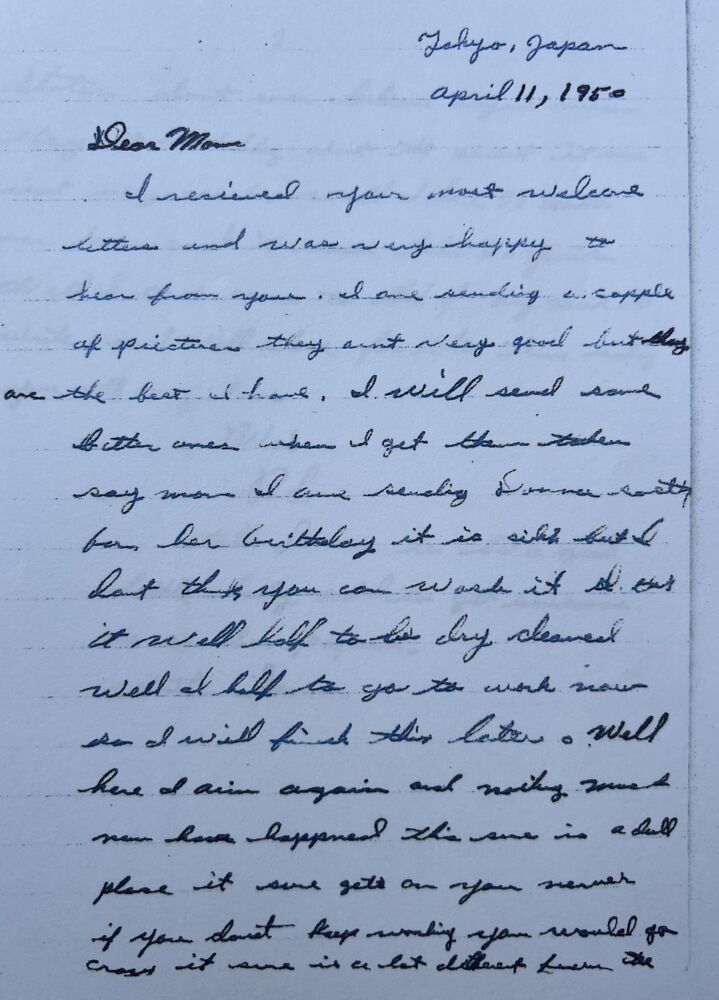 Tokyo, Japan
April 11, 1950
Dear Mom
I recieved your most welcome
letters and was very happy to
hear from you. I am sending a copple
of pictures they aint very good but they
are the best I have. I will send some
better ones when I get them taken
say mom I am sending Donna
for her birthday it is silk but I
dont think you can wash it
it will half to be dry cleaned
Well I half to go to work now
so I will finish this later. Well
here I aim again and nothing much
new have happned this sure is a dull
place it sure gets on your nerves
if you dont keep working you would go
crazy it sure is a lot different from the